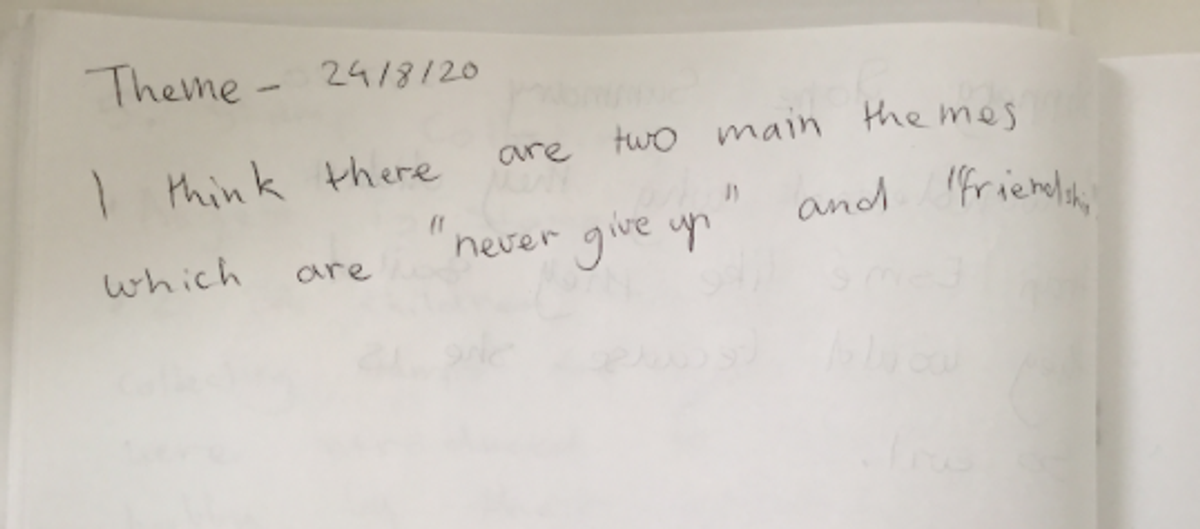 Theme - 24/8/20
I think there are two main themes
which are "never give up" and "friendshi